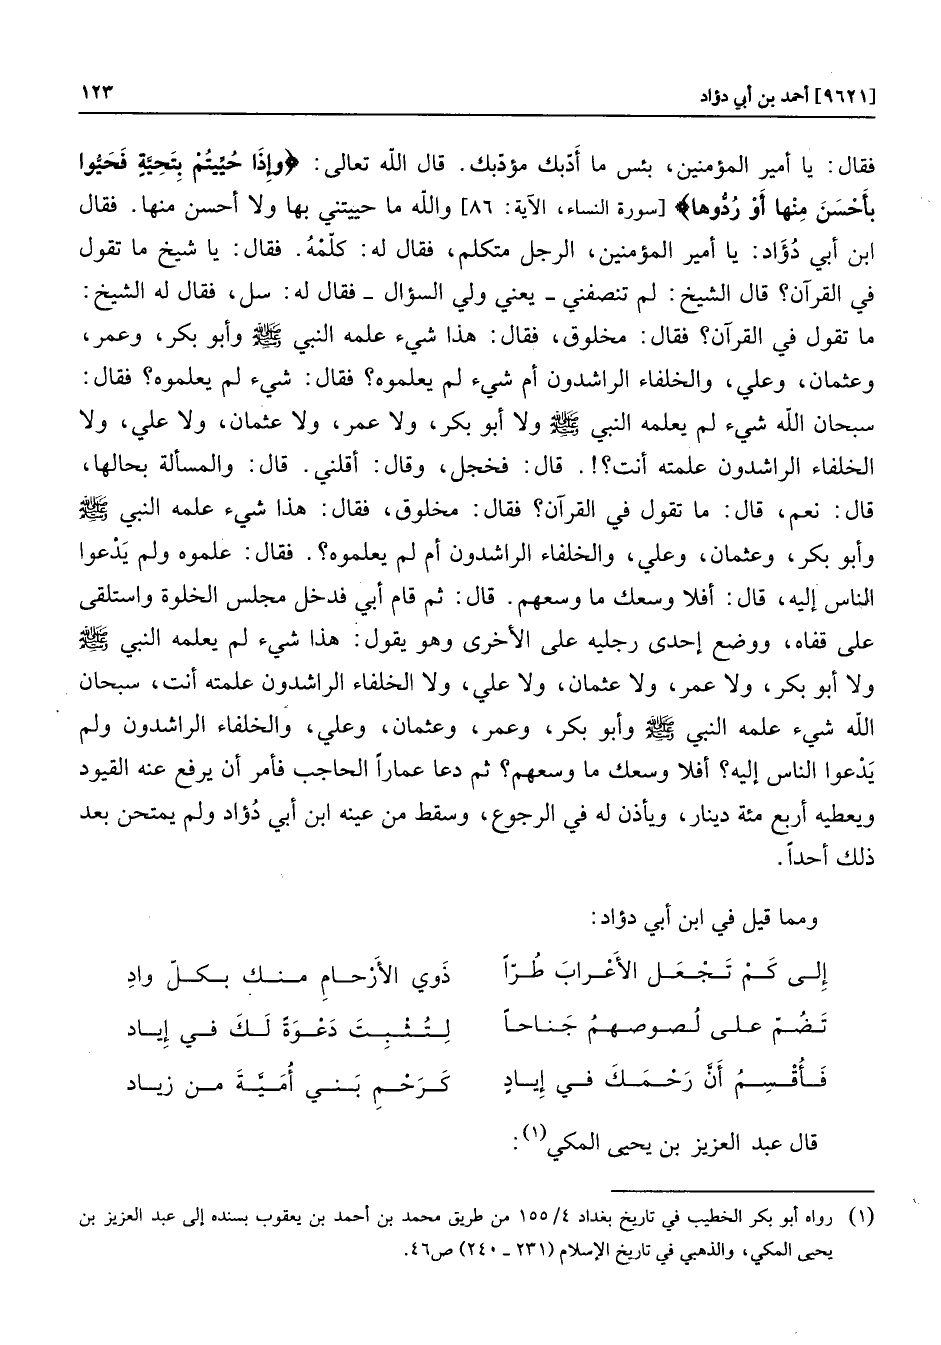 [٩٦٢١] أحمد بن أبي دؤاد ١٢٣
فقال: يا أمير المؤمنين، بئس ما أَدّبك مؤدّبك. قال الله تعالى: ﴿وإِذَا حُيِّيتُمْ بِتَحِيَّةٍ فَحَيُّوا
بأَحْسَنَ مِنْها أَوْ رُدُّوها﴾ [سورة النساء، الآية: ٨٦] والله ما حييتني بها ولا أحسن منها. فقال
ابن أبي دُؤَاد: يا أمير المؤمنين، الرجل متكلم، فقال له: كلّمْهُ. فقال: يا شيخ ما تقول
في القرآن؟ قال الشيخ: لم تنصفني ـ يعني ولي السؤال ـ فقال له: سل، فقال له الشيخ:
ما تقول في القرآن؟ فقال: مخلوق، فقال: هذا شيء علمه النبي ﷺ وأبو بكر، وعمر،
وعثمان، وعلي، والخلفاء الراشدون أم شيء لم يعلموه؟ فقال: شيء لم يعلموه؟ فقال:
سبحان الله شيء لم يعلمه النبي ﷺ ولا أبو بكر، ولا عمر، ولا عثمان، ولا علي، ولا
الخلفاء الراشدون علمته أنت؟!. قال: فخجل، وقال: أقلني. قال: والمسألة بحالها،
قال: نعم، قال: ما تقول في القرآن؟ فقال: مخلوق، فقال: هذا شيء علمه النبي ﷺ
وأبو بكر، وعثمان، وعلي، والخلفاء الراشدون أم لم يعلموه؟. فقال: علموه ولم يَدْعوا
الناس إليه، قال: أفلا وسعك ما وسعهم. قال: ثم قام أبي فدخل مجلس الخلوة واستلقى
على قفاه، ووضع إحدى رجليه على الأخرى وهو يقول: هذا شيء لم يعلمه النبي ﷺ
ولا أبو بكر، ولا عمر، ولا عثمان، ولا علي، ولا الخلفاء الراشدون علمته أنت، سبحان
الله شيء علمه النبي ﷺ وأبو بكر، وعمر، وعثمان، وعلي، والخلفاء الراشدون ولم
يَدْعوا الناس إليه؟ أفلا وسعك ما وسعهم؟ ثم دعا عماراً الحاجب فأمر أن يرفع عنه القيود
ويعطيه أربع مئة دينار، ويأذن له في الرجوع، وسقط من عينه ابن أبي دُؤاد ولم يمتحن بعد
ذلك أحداً.
ومما قيل في ابن أبي دؤاد:
إلى كَمْ تَجْعَل الأعْرابَ طُرّاً ذَوي الأرْحامِ منك بكلّ وادِ
تَضُمّ على لُصوصهمُ جَناحاً لِتُثْبِتَ دَعْوَةً لَكَ في إياد
فأُقْسِمُ أنَّ رَحْمَكَ في إيادٍ كَرَحْمِ بَني أُمَيَّةَ من زياد
قال عبد العزيز بن يحيى المكي(١):
(١) رواه أبو بكر الخطيب في تاريخ بغداد ٤/ ١٥٥ من طريق محمد بن أحمد بن يعقوب بسنده إلى عبد العزيز بن
يحيى المكي، والذهبي في تاريخ الإسلام (٢٣١ ـ ٢٤٠) ص٤٦.